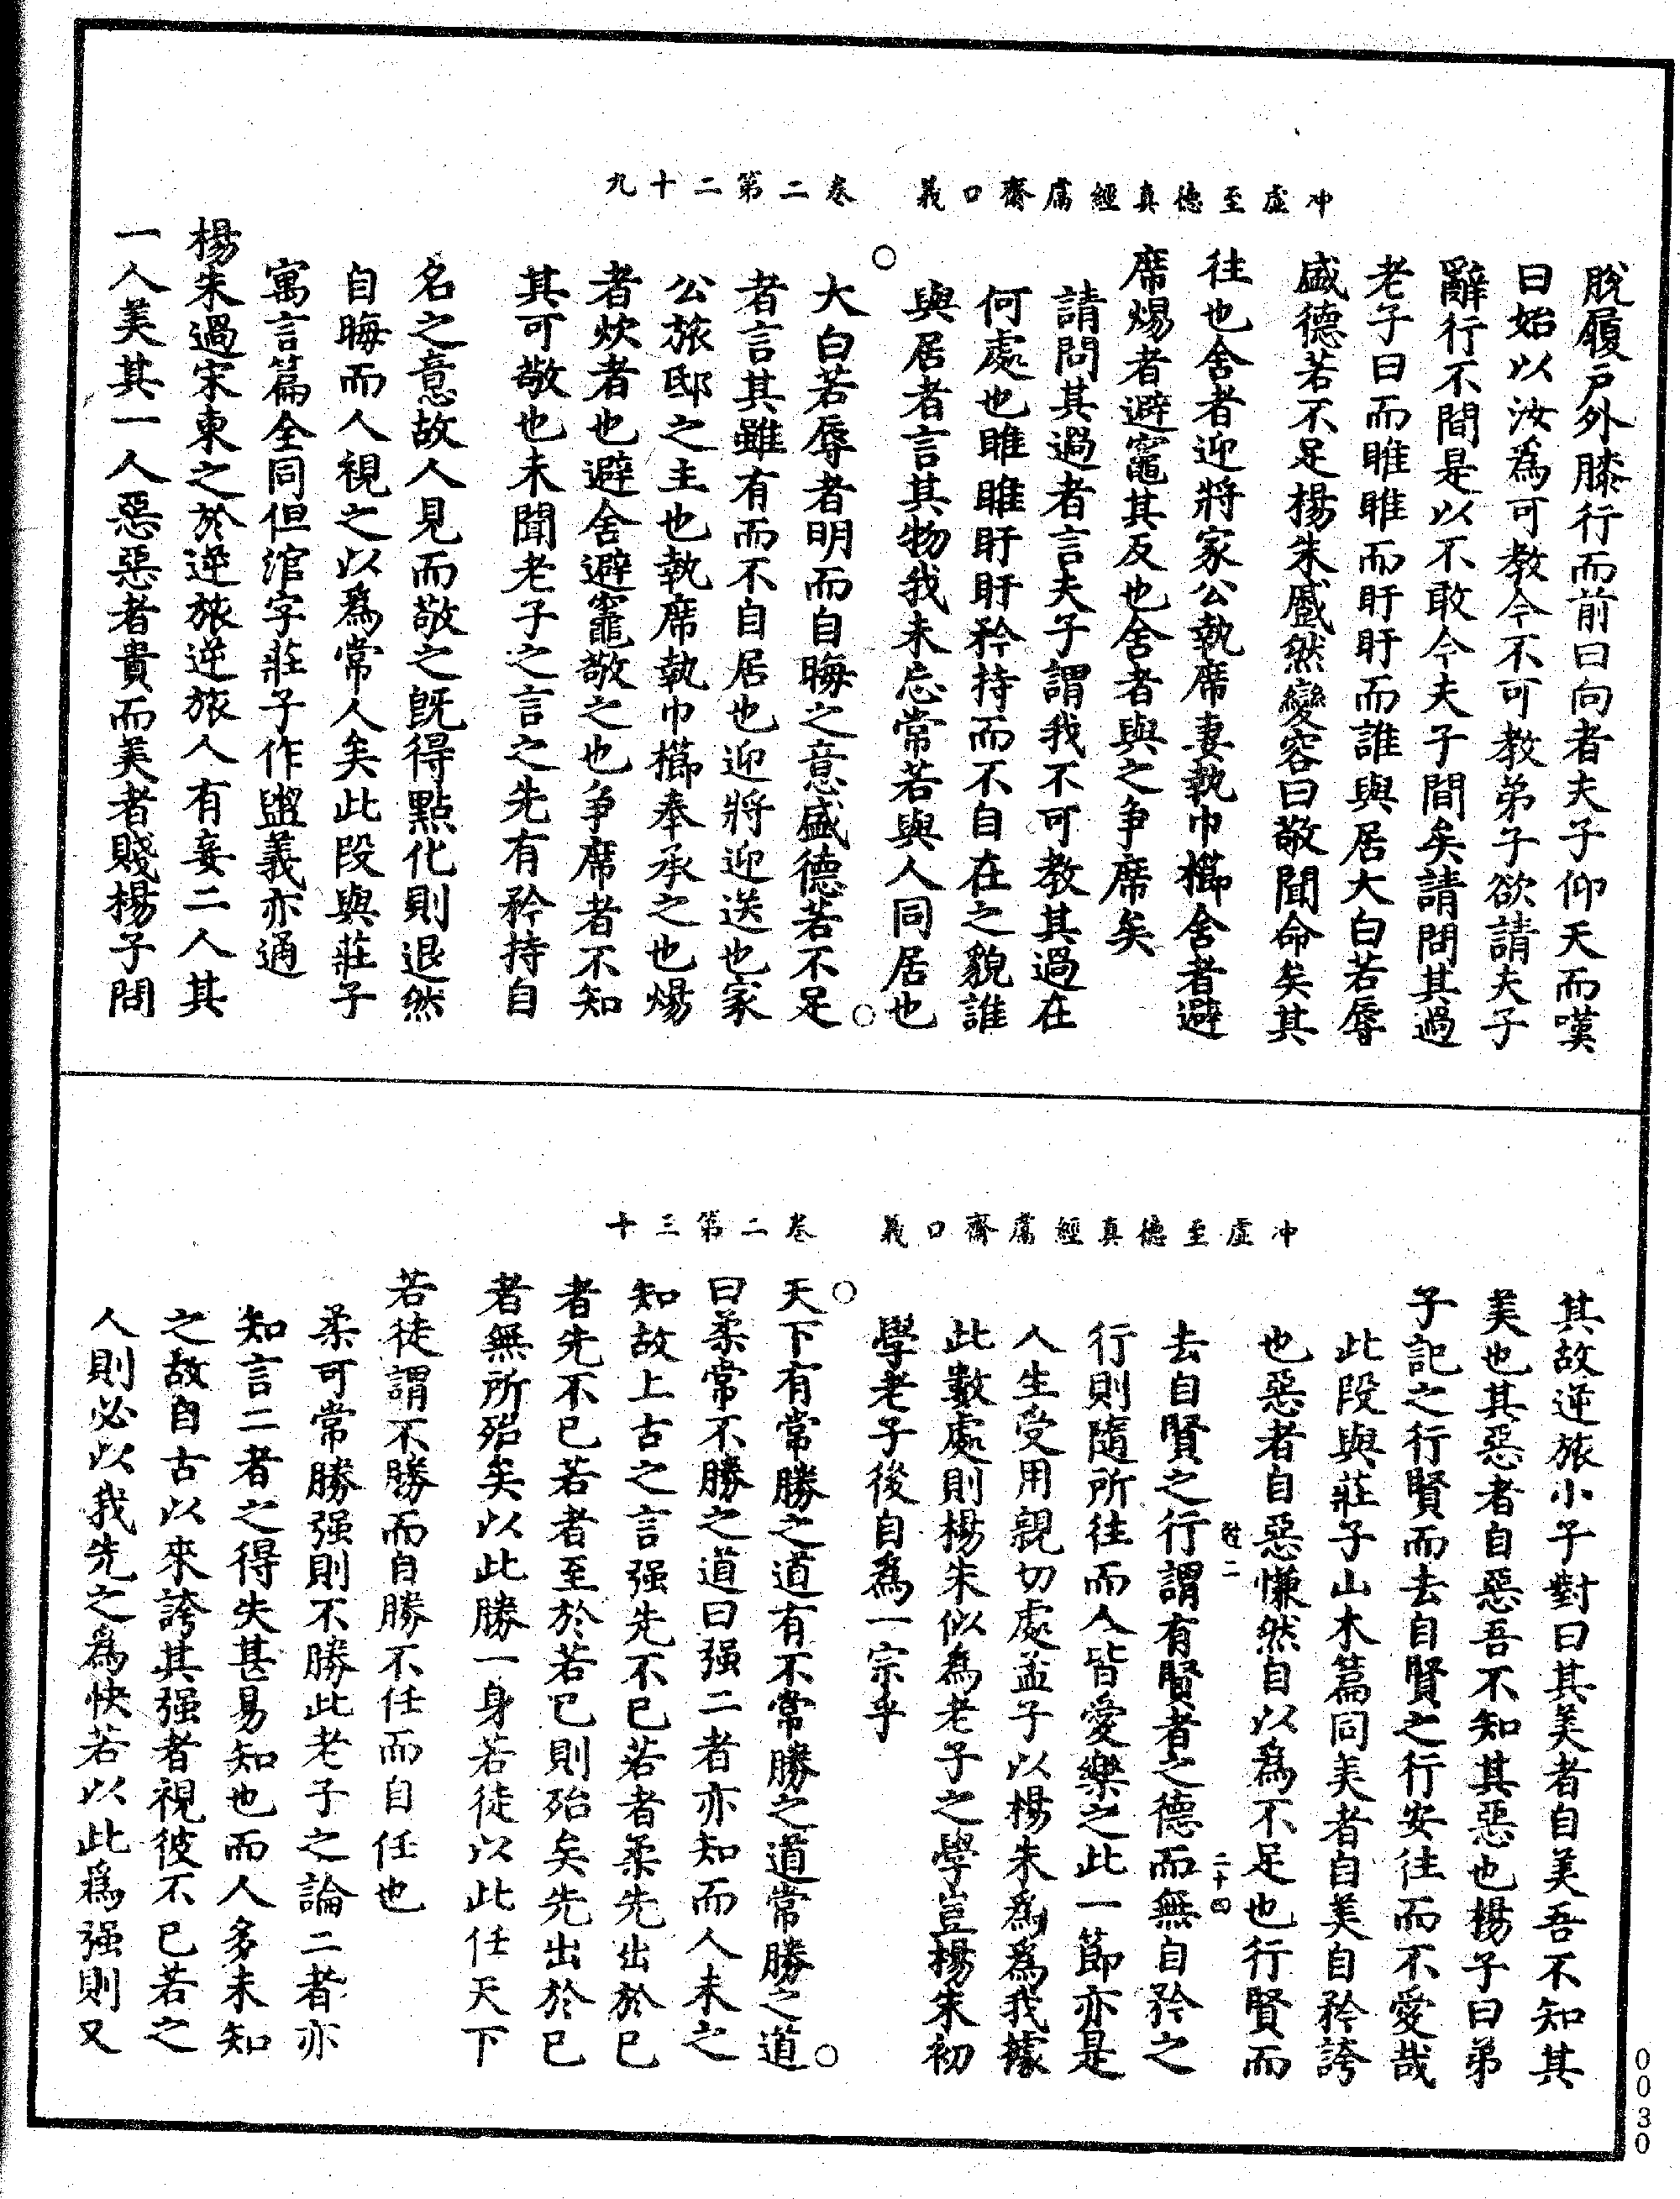 冲虛至德真經鬳齋口義　卷二第二十九
脫履戶外膝行而前曰向者夫子仰天而嘆
曰始以汝爲可教今不可教弟子欲請夫子
辭行不間是以不敢今夫子間矣請問其過
老子曰而睢睢而盱盱而誰與居大白若辱
盛德若不足楊朱蹙然變容曰敬聞命矣其
往也舍者迎將家公執席妻執巾櫛舍者避
席煬者避竈其反也舍者與之爭席矣
請問其過者言夫子謂我不可教其過在
何處也睢睢盱盱矜持而不自在之貌誰
與居者言其物我未忘常若與人同居也
大白若辱者明而自晦之意盛德若不足
者言其雖有而不自居也迎將迎送也家
公旅邸之主也執席執巾櫛奉承之也煬
者炊者也避舍避竈敬之也爭席者不知
其可敬也未聞老子之言之先有矜持自
名之意故人見而敬之既得點化則退然
自晦而人視之以爲常人矣此段與莊子
寓言篇全同但涫字莊子作盥義亦通
楊朱過宋東之於逆旅逆旅人有妾二人其
一人美其一人惡惡者貴而美者賤楊子問
冲虛至德真經鬳齋口義　卷二第三十
其故逆旅小子對曰其美者自美吾不知其
美也其惡者自惡吾不知其惡也楊子曰弟
子記之行賢而去自賢之行安往而不愛哉
此段與莊子山木篇同美者自美自矜誇
也惡者自惡慊然自以爲不足也行賢而
二十四
去自賢之行謂有賢者之德而無自矜之
行則隨所往而人皆愛樂之此一節亦是
人生受用親切處孟子以楊朱爲爲我據
此數處則楊朱似爲老子之學豈楊朱初
學老子後自爲一宗乎
天下有常勝之道有不常勝之道常勝之道
曰柔常不勝之道曰强二者亦知而人未之
知故上古之言强先不已若者柔先出於已
者先不已若者至於若已則殆矣先出於已
者無所殆矣以此勝一身若徒以此任天下
若徒謂不勝而自勝不任而自任也
柔可常勝强則不勝此老子之論二者亦
知言二者之得失甚易知也而人多未知
之故自古以來誇其强者視彼不已若之
人則必以我先之爲快若以此爲强則又
0030